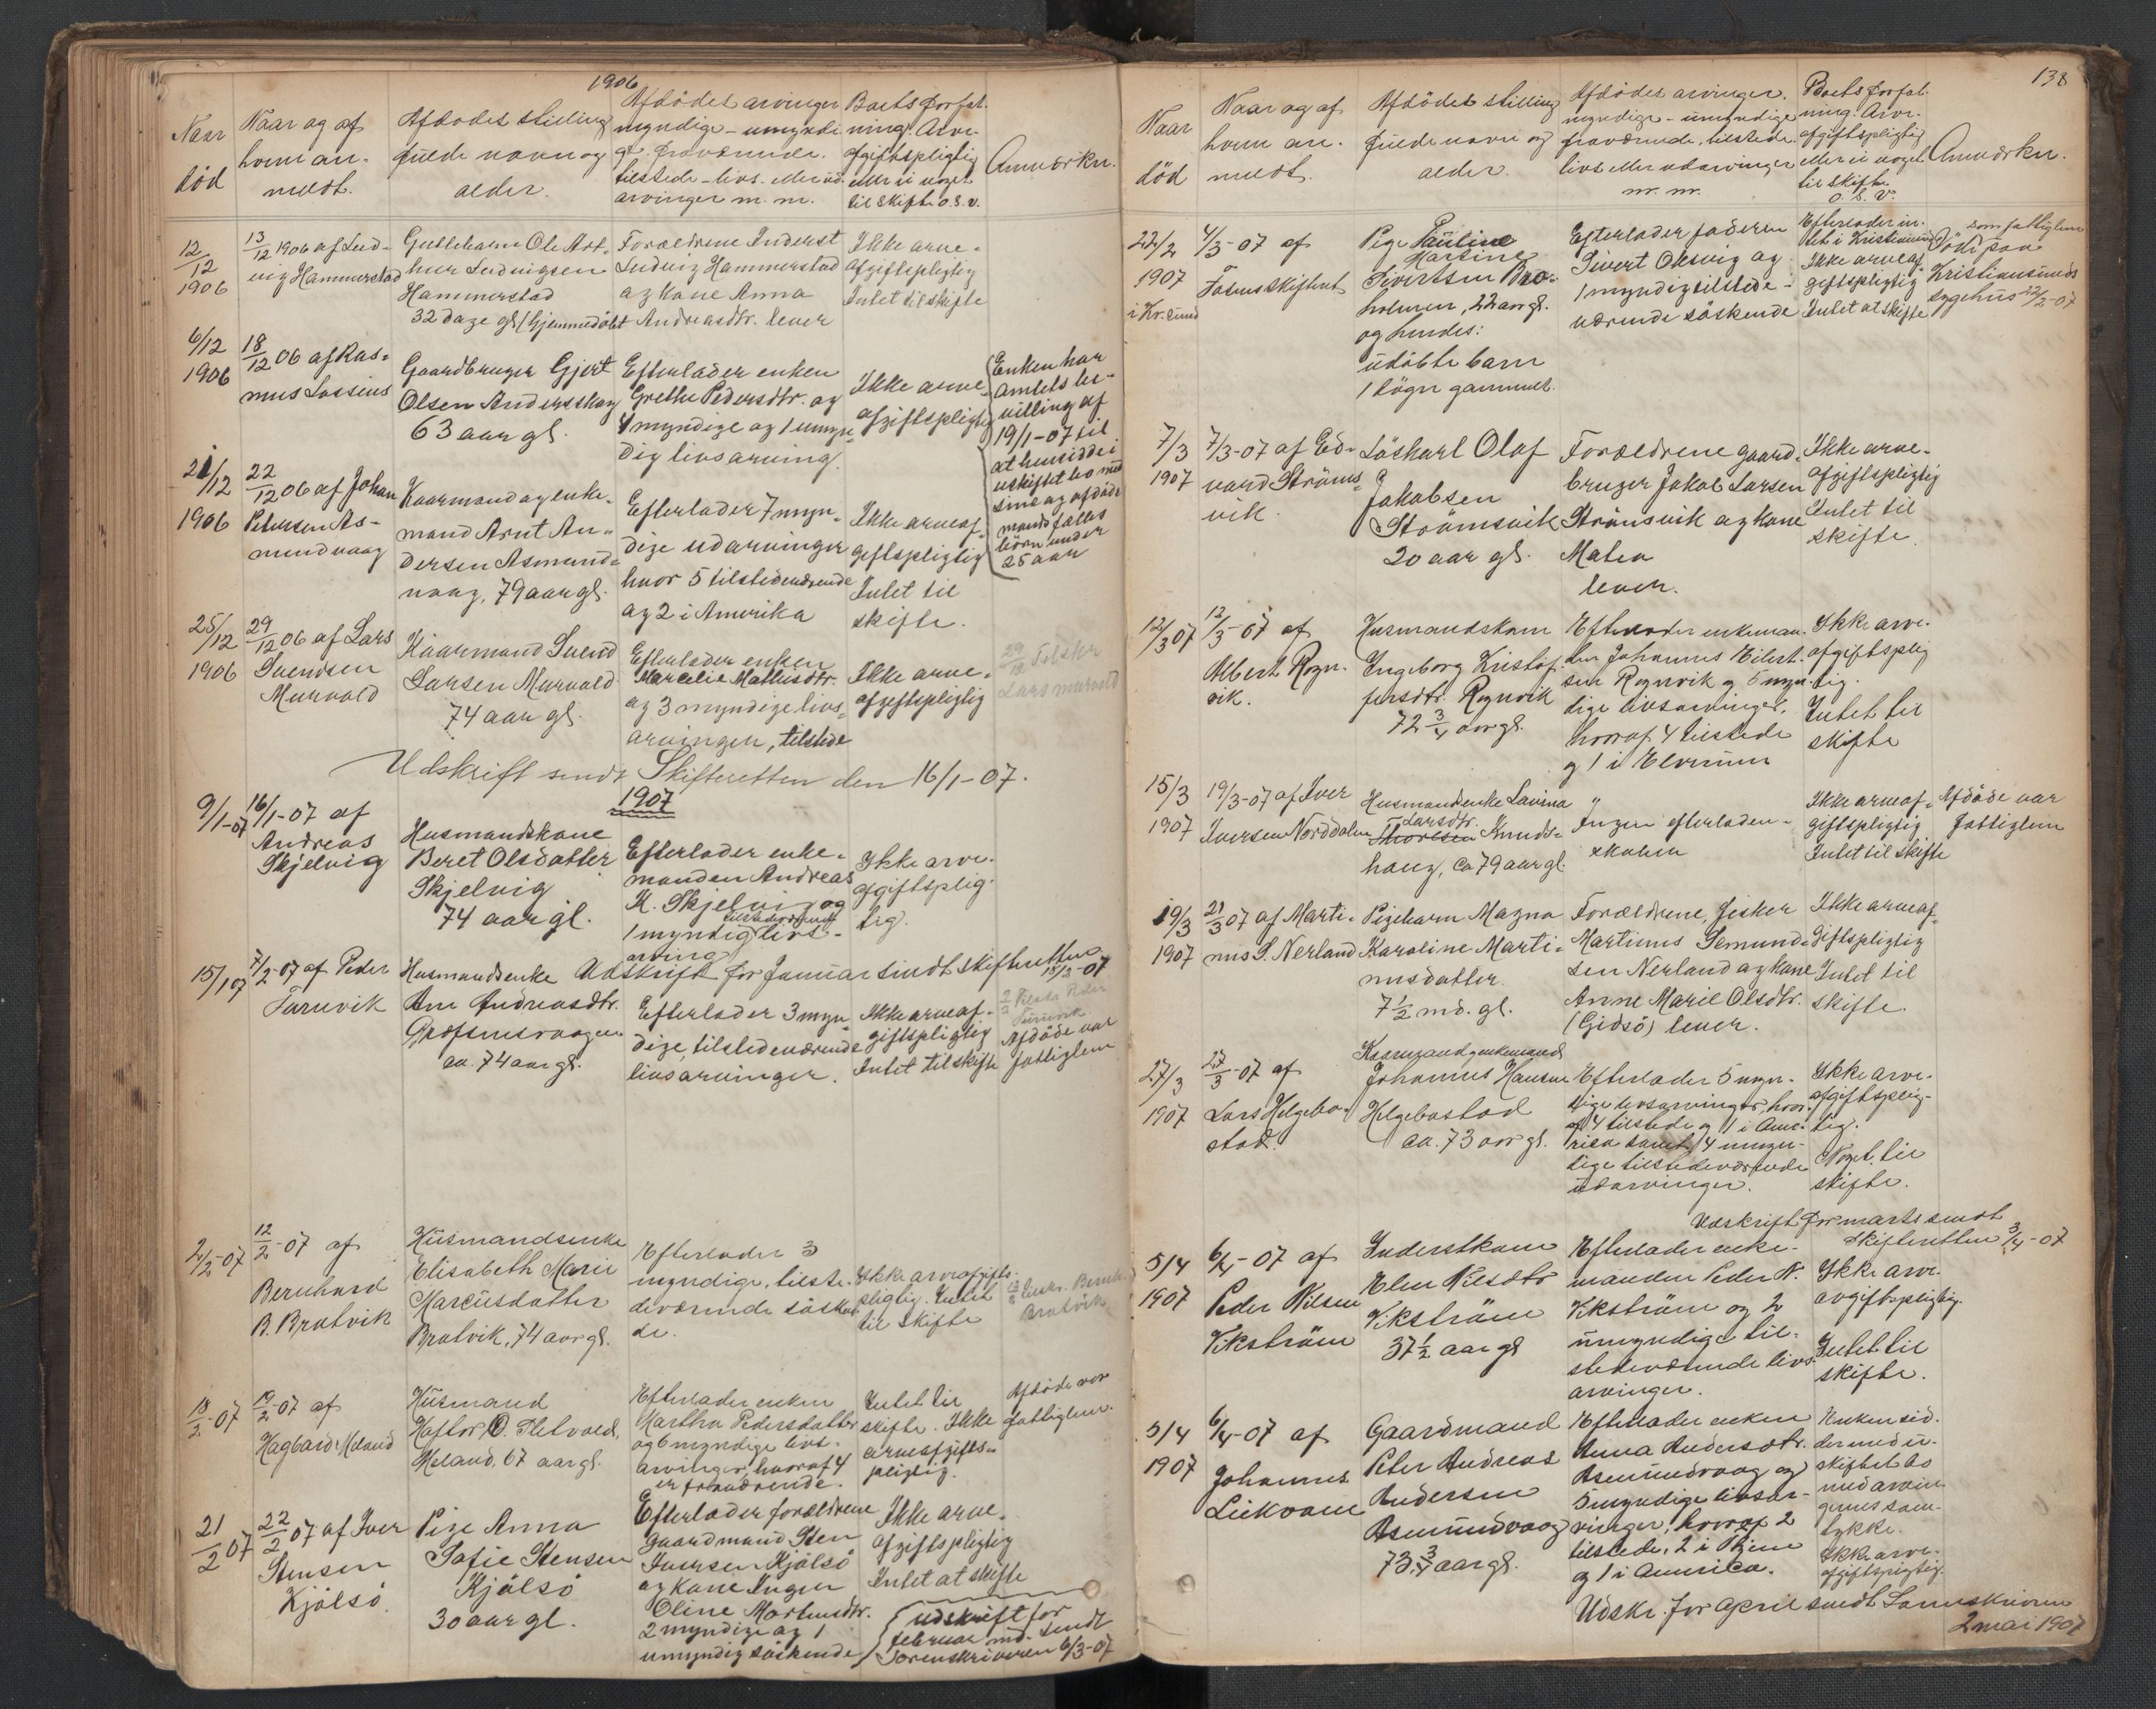 1906
Naar
död
Naar og af
hvem an-
meldt.
Afdödes stilling
fulde navn og
alder.
Afdödes arvinger
myndige - umyndi
ge. fraværende.
tilstede - livs- eller ud-
arvinger m. m.
Boets forfat-
ning. Arve-
afgiftspligtig
eller ei noget
til skifte o. s. v.
Anmærkn.
12/12
1906
13/12 1906 af Lud-
vig Hammerstad
Guttebarn Ole Art-
hur Ludvigsen
Hammerstad
32 dage gl. (Hjemmedöbt
Forældrene Inderst
Ludvig Hammerstad
og kone Anna
Andreasdtr. lever
Ikke arve-
afgiftspligtig
Intet til skifte
6/12
1906
18/12 06 af Ras-
mus Lossius
Gaardbruger Gjert
Olsen Andersskog
63 aar gl.
Efterlader enken
Grethe Pedersdtr. og
4 myndige og 1 umyn-
dig livsarving.
Ikke arve-
afgiftspligtig
Enken har
amtets be-
villing af
19/1-07 til
at hensidde i
uskiftet bo med
sine og afdöde
mands fælles
börn under
25 aar
21/12
1906
22/12 06 af Johan
Petersen As-
mundvaag
Kaarmand og enke-
mand Arnt An-
dersen Asmund-
vaag, 79 aar gl.
Efterlader 7 myn-
dige udarvinger
hvor 5 tilstedeværende
og 2 i Amerika
Ikke arveaf-
giftspligtig
Intet til
skifte.
25/12
1906
29/12 06 af Lars
Svendsen
Murvold
Kaarmand Svend
Larsen Murvold
74 aar gl.
Efterlader enken
Marcelie Mathisdtr.
og 3 myndige livs-
arvinger, tilstede
Ikke arve-
afgiftspligtig
29/12 Tilskr
Lars murvold
Udskrift sendt Skifteretten den 16/1-07.
1907
9/1-07
16/1-07 af
Andreas
Skjelvig
Husmandskone
Beret Olsdatter
Skjelvig
74 aar gl.
Efterlader enke-
manden Andreas
K. Skjelvig og
tilstedeværende
1 myndig livs-
arving
Ikke arve-
afgiftsplig-
tig.
Udskrift for Januar sendt skifteretten
15/2-07
15/1 07
7/2-07 af Peder
Turnvik
Husmandsenke
Ane Andreasdtr.
Græfsnesvaagen
ca. 74 aar gl.
Efterlader 3 myn-
dige, tilstedeværende
livsarvinger.
Ikke arveaf-
giftspligtig
Intet til skifte
Peder
Turnvik
Afdöde var
fattiglem
2/2-07
12/2-07 af
Bernhard
B. Bratvik
Husmandsenke
Elisabeth Marie
Marcusdatter
Bratvik, 74 aar gl.
Efterlader 3
myndige, tilste-
deværende sösken-
de.
Ikke arveafgifts-
pligtig. Intet
til skifte
Bratvik
18/2-07
19/2-07 af
Hagbard Meland
Husmand
Haftor O. Thetvold,
Meland, 67 aar gl.
Efterlader enken
Martha Pedersdatter
og 6 myndige livs-
arvinger, hvoraf 4
er fraværende.
Intet til
skifte. Ikke
arveafgifts-
pligtig.
Afdöde var
fattiglem.
21/2 07
22/2 07 af Iver
Stensen
Kjölsö
Pige Anna
Sofie Stensen
Kjölsö
30 aar gl.
Efterlader forældrene
gaardmand Sten
Iversen Kjölsö
og kone Inger
Oline Mortensdtr.
2 myndige og 1
umyndig söskende
Ikke arve-
afgiftspligtig
Intet at skifte
Udskrift for
februar md. sendt
Sorenskriveren 6/3-07
138
Naar
död
Naar og af
hvem an-
meldt.
Afdödes stilling
fulde navn og
alder.
Afdödes arvinger.
myndige - umyndige
fraværende, tilstede.
livs eller udarvinger
m. m.
Boets forfat-
ning. Arve-
afgiftspligtig
eller ei noget
til skifte
o. s. v.
Anmærkn.
22/2
1907
i Kr.sund
4/3-07 af
Fosnes skifteret
Pige Pauline
Martine
Sivertsen Bro-
holmen, 22 aar gl.
og hendes:
udöbte barn
1 dögn gammelt.
Efterlader faderen
Sivert Olsvig og
1 myndig tilstede-
værende söskende
Efterlader in-
tet i Kristiansund
Ikke arveaf-
giftspligtig
Intet at skifte
som fattiglem
Död paa
Kristiansunds
sygehus 22/2-07
7/3
1907
7/3-07 af Ed-
vard Ströms-
vik.
Löskarl Olaf
Jakobsen
Strömsvik
20 aar gl.
Forældrene gaard-
bruger Jakob Larsen
Strömsvik og kone
Matea
lever.
Ikke arve-
afgiftspligtig
Intet til
skifte.
12/3 07
12/3-07 af
Albert Rogn-
vik.
Husmandskone
Ingeborg Kristof-
fersdtr. Rognvik
72 3/4 aar gl.
Efterlader enkeman-
den Johannes Eilert-
sen Rognvik og 5 myn-
dige livsarvinger,
hvoraf 4 tilstede
og 1 i Elverum
Ikke arve-
afgiftsplig
tig.
Intet til
skifte
15/3
1907
19/3-07 af Iver
Iversen Norddalen
Husmandsenke Lavina
Larsdtr.
Thorlsen Knuds-
haug, ca 79 aar gl.
Ingen efterladen-
skaber
Ikke arveaf-
giftspligtig
Intet til skifte
Afdöde var
fattiglem
19/3
1907
21/3 07 af Marti-
nus S. Nerland
Pigebarn Magna
Karoline Marti-
nusdatter.
7 1/2 md. gl.
Forældrene, fisker
Martinus Semund-
sen Nerland og kone
Anne Marie Olsdtr.
(Gidsö) lever.
Ikke arveaf-
giftspligtig
Intet til
skifte.
27/3
1907
27/3-07 af
Lars Helgebo-
stad.
Kaarmand og enkemand
Johannes Hansen
Helgebostad
ca. 73 aar gl.
Efterlader 5 myn-
dige livsarvinger, hvor-
af 4 tilstede og 1 i Ame-
rica samt 4 umyn-
dige tilstedeværende
udarvinger.
Ikke arve-
afgiftsplig-
tig.
Noget til
skifte.
Udskrift for marts sendt
skifteretten 3/4-07
5/4
1907
6/4-07 af
Peder Nilsen
Vikström
Inderstkone
Elen Nilsdtr
Vikström
37 1/2 aar gl
Efterlader enke-
manden Peder N.
Vikström og 2
umyndige til-
stedeværende livs-
arvinger.
Ikke arve-
avgiftspligtig.
Intet til
skifte.
5/4
1907
6/4-07 af
Johannes
Leikvam
Gaardmand
Peter Andreas
Andersen
Asmundvaag
73 3/4 aar gl.
Efterlader enken
Anna Andersdtr.
Asmundvaag og
5 myndige livsar-
vinger, hvoraf 2
tilstede, 2 i Hjem
og 1 i America.
Enken sid-
der med u-
skiftet bo
med arvin-
gernes sam-
tykke.
Ikke arve-
afgiftspligtig.
Udskr. for april sendt Sorenskriveren
2 mai 1907